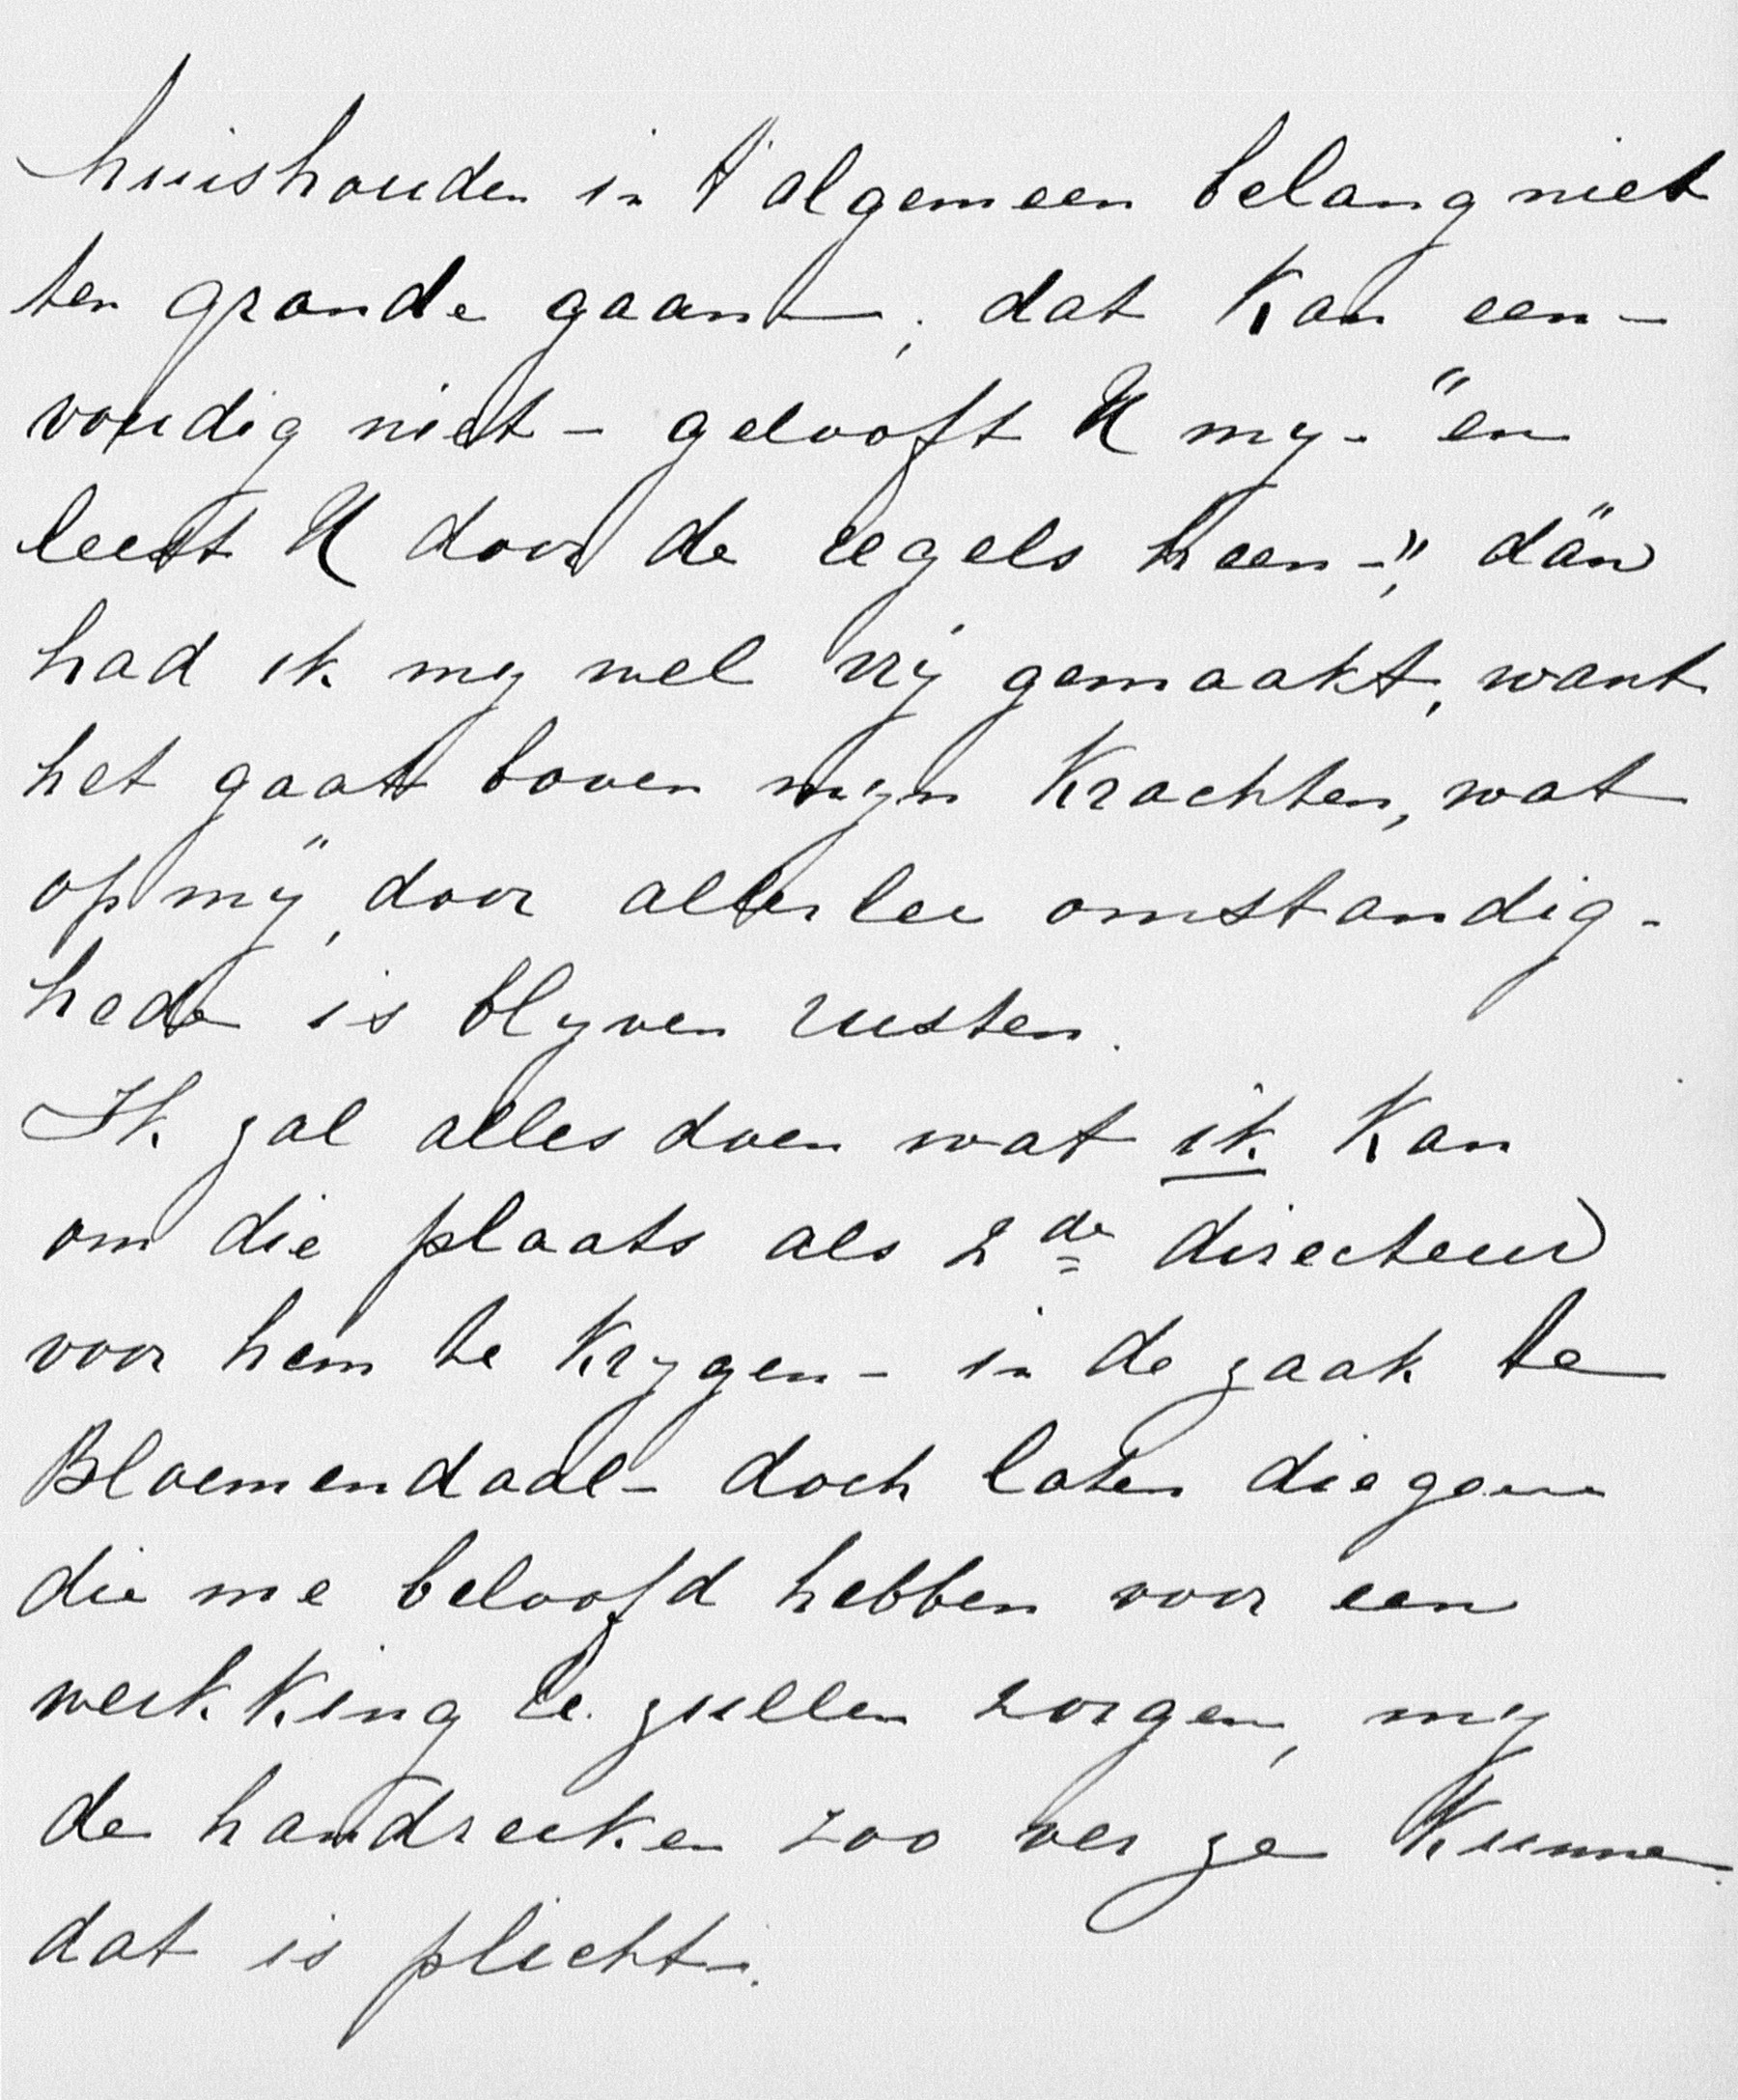 huishouden in 't algemeen belang niet
ten gronde gaan, dat kan een-
voudig niet - gelooft U my - "en
leest U door de regels heen -", dän
had ik my wel vrij gemaakt, want
het gaat boven myn krachten, wat
op mÿ, door allerlei omstandig-
hede is blyven rusten.
Ik zal alles doen wat ik kan
om die plaats als 2de directeur
voor hem te krygen - in de zaak te
Bloemendaal - doch laten diegene
die me beloofd hebben voor een
werkking te zullen zorgen, my
de handreiken zoo ver ze kunne
dat is plicht.